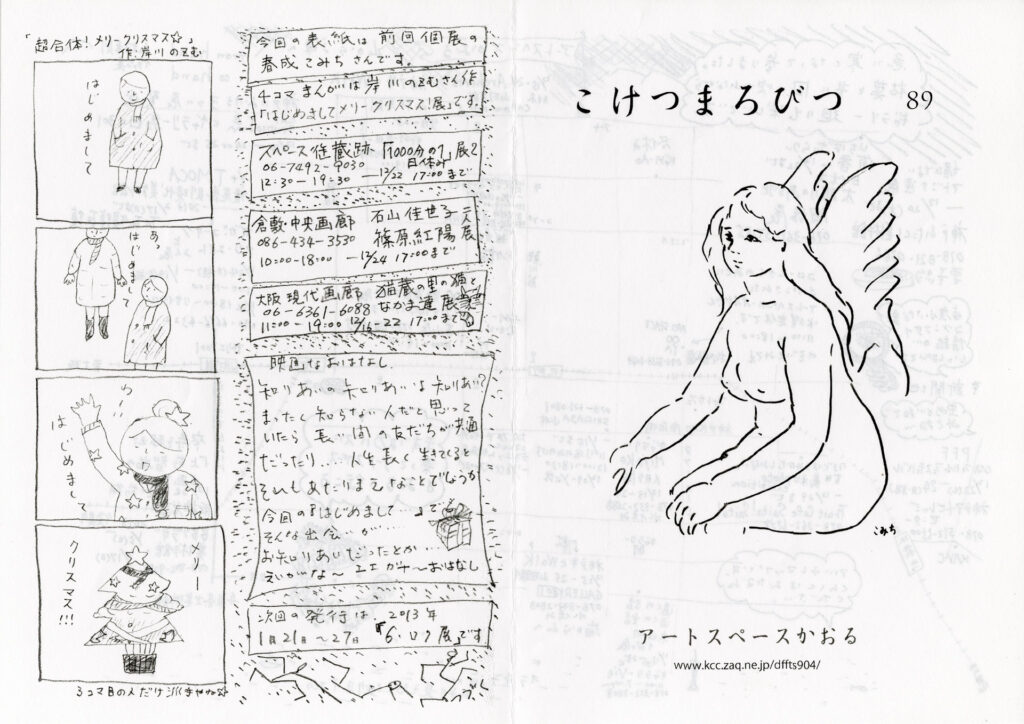 「超合体！メリークリスマス☆」
作：岸川のぞむ
はじめまして
あっ
はじめまして
はじめまして
メリー
クリスマス!!!
3コマ目の人だけ
今回の表紙は前回個展の
春成こみちさんです。
4コマまんがは岸川のぞむさん作
「はじめましてメリークリスマス!展」です。
スペース往蔵跡「1000分の1」展2
06-7492-9030 日休み
12:30-19:30 —12/22 17:00まで
倉敷・中央画廊 石山佳世子 二人
086-434-3530 篠原紅陽展
10:00-18:00 —12/24 17:00まで
大阪現代画廊 猫蔵の里の猫と
06-6361-6088 なかま達展
11:00-19:00 12/16-22 17:00まで
映画なおはなし
知りあいの知りあいは知りあい?
まったく知らない人だと思って
いたら長い間の友だちが共通
だったり...人生長く生きてくると
それもあたりまえなことでしょうか
今回の『はじめまして...』で
そんな出会いが...
お知りあいだったとか...
えいがな〜ええがな〜おはなし
次回の発行は、2013年
1月21日〜27日 「6・ロク展」です
こけつまろびつ 89
こみち
アートスペースかおる
www.kcc.zaq.ne.jp/dffts904/